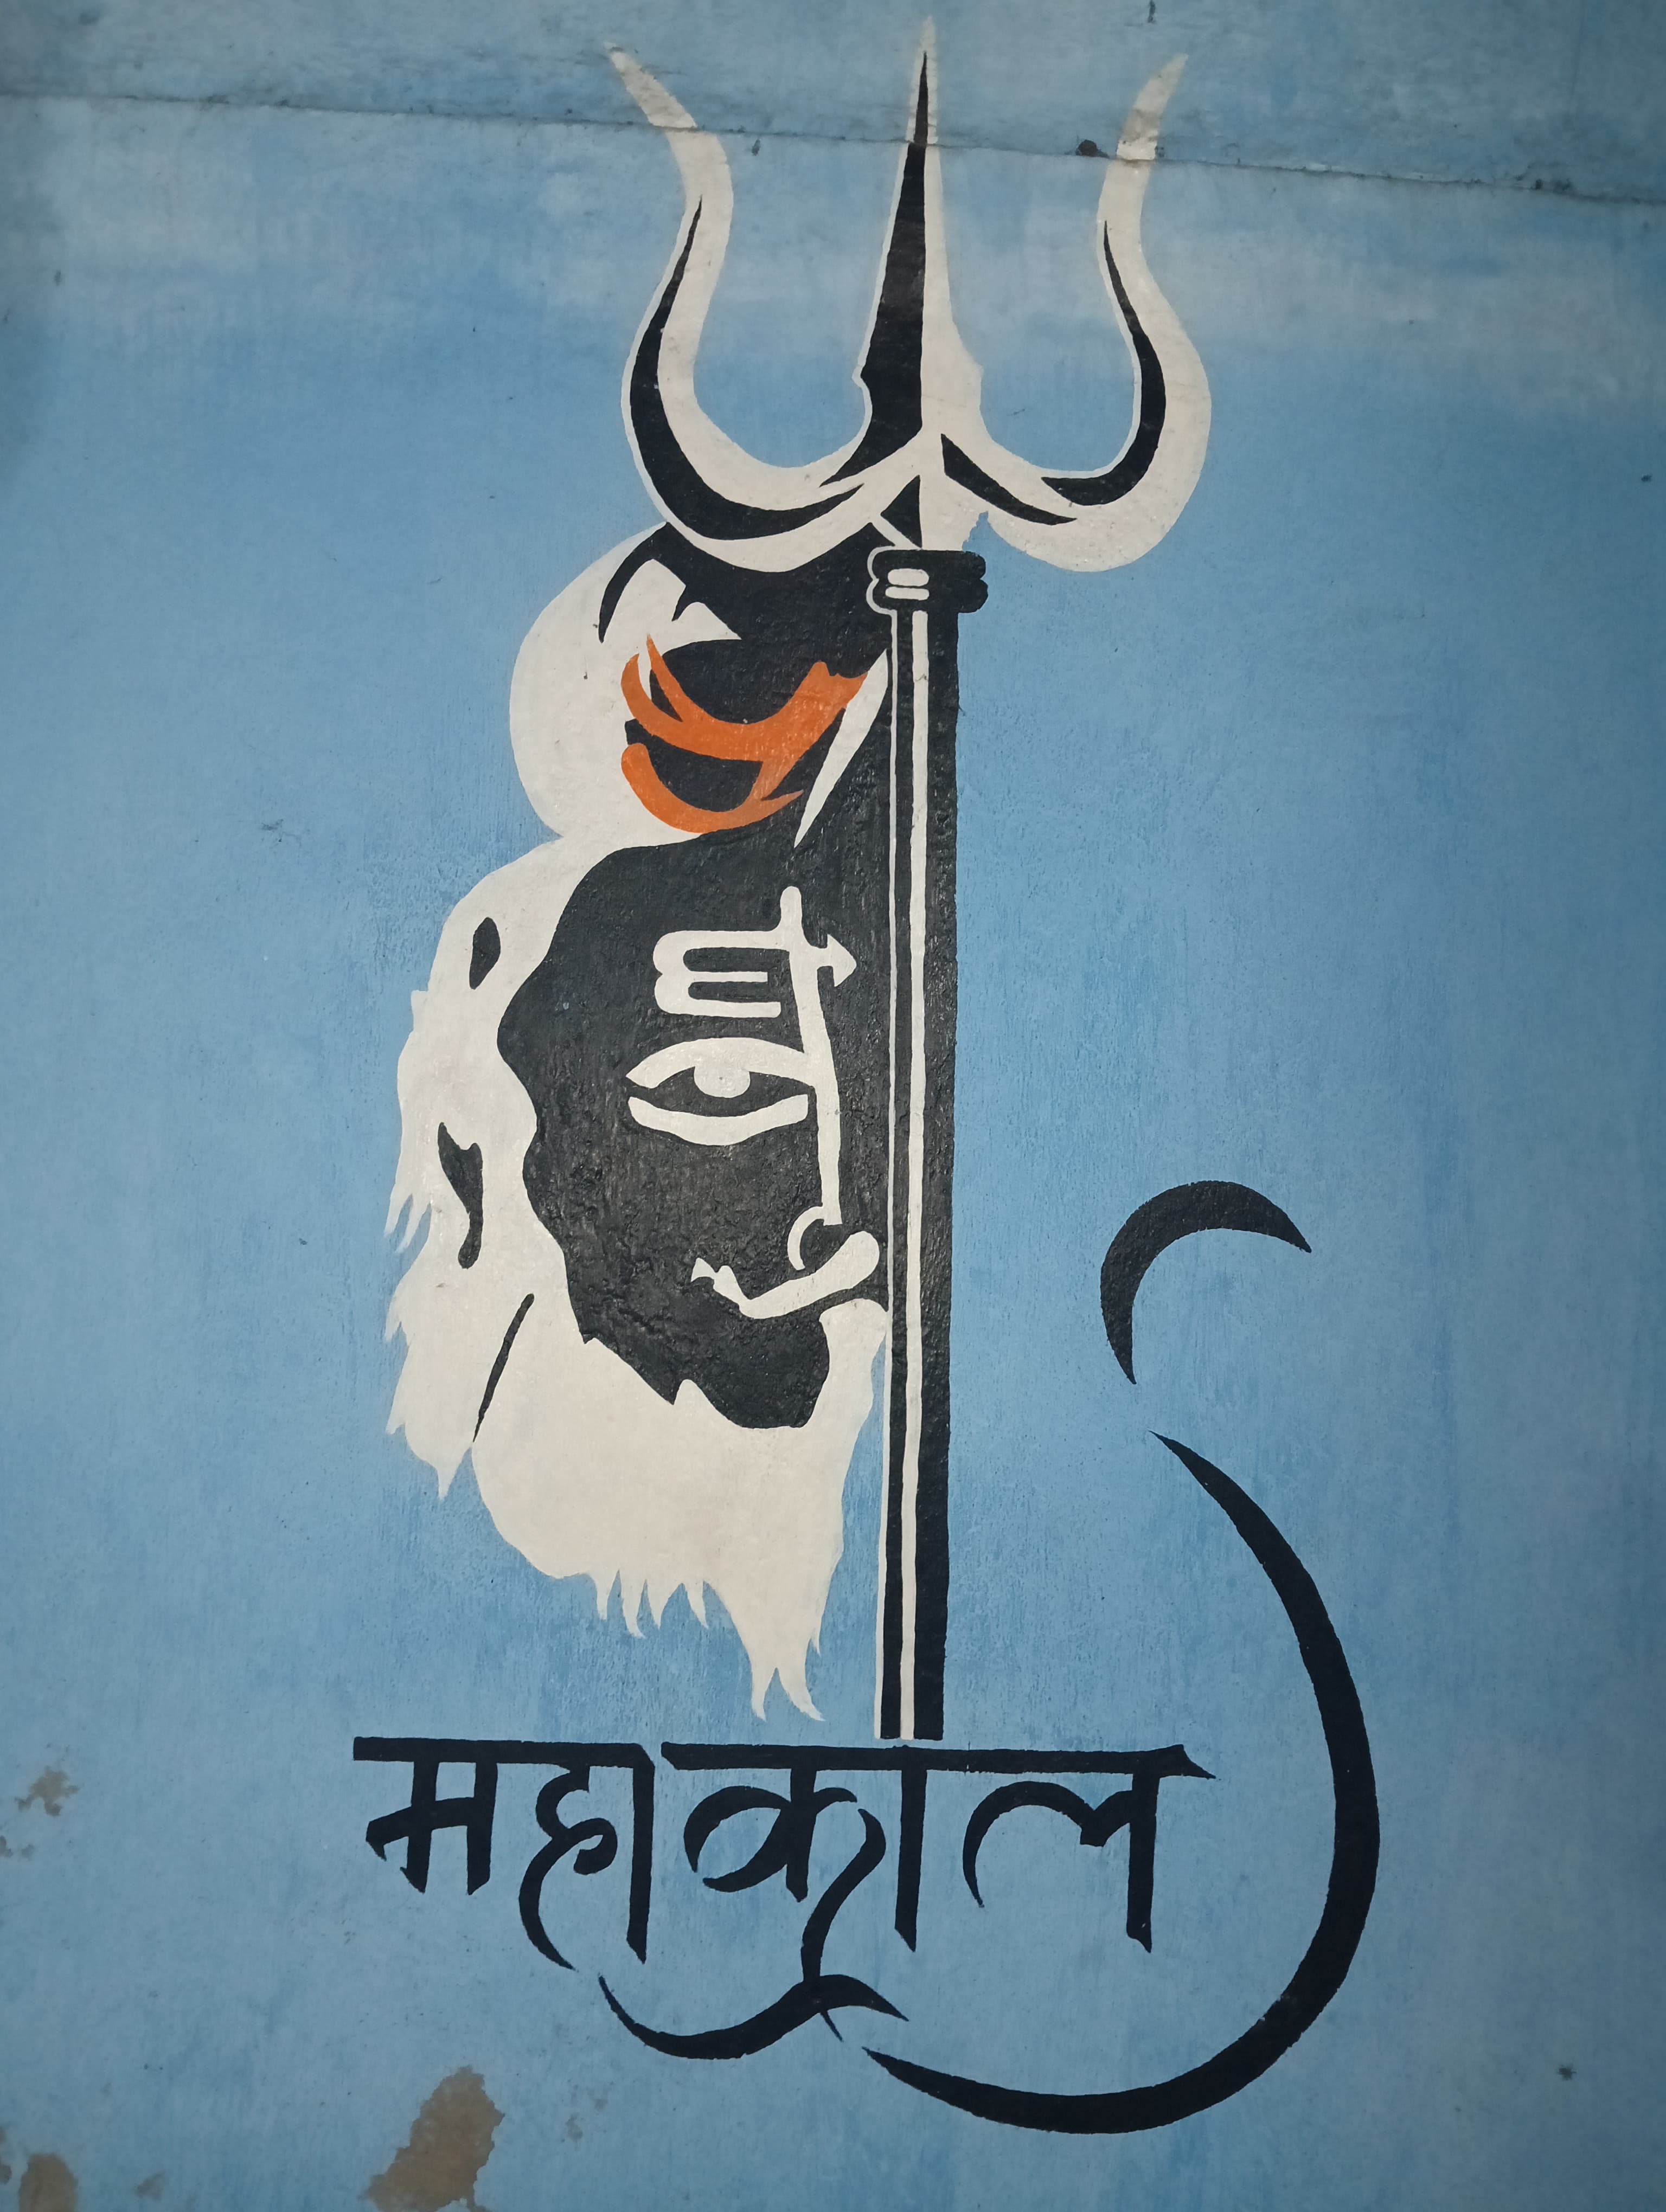 महाकाल